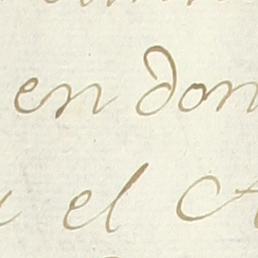 en don
el